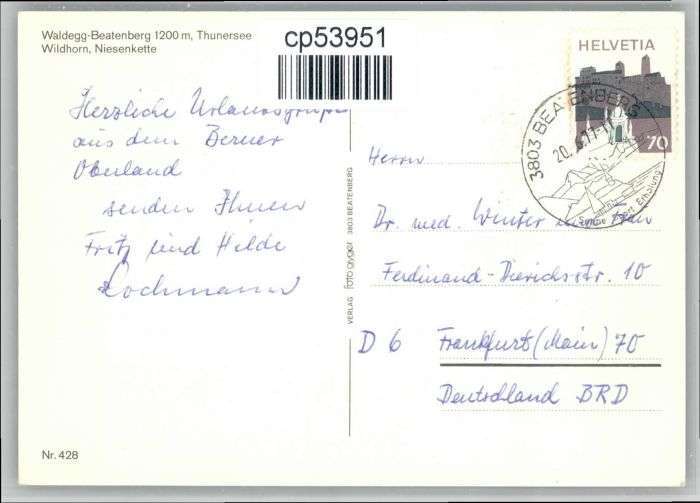 Waldegg-Beatenberg 1200 m, Thunersee
Wildhorn, Niesenkette
cp53951
HELVETIA
70
3803 BEATENBERG
20. 77-11
Sonne Sport Erholung
Herzliche Urlaubsgrüße
aus dem Berner
Oberland
senden Ihnen
Fritz und Hilde
Lochmann
VERLAG FOTO GYGER 3803 BEATENBERG
Herrn
Dr. med. Winter u. Frau
Ferdinand-Dierichsstr. 10
D 6 Frankfurt (Main) 70
Deutschland BRD
Nr. 428